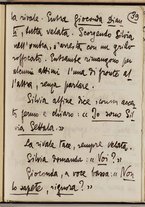 59
la rivale. Entra Gioconda Dian-
ti, tutta velata. Scorgendo Silvia
nell'ombra, s'arresta con un grido
soffocato. Entrambe rimangono per
alcuni attimi l'una di fronte al-
l'altra, senza parlare.
Silvia alfine dice con ac-
cento fermo e chiaro: « Io sono Sil-
via Settala. »
La rivale tace, sempre velata.
Silvia domanda: « Voi? »
Gioconda, a voce bassa: « Non
lo sapete, signora? »